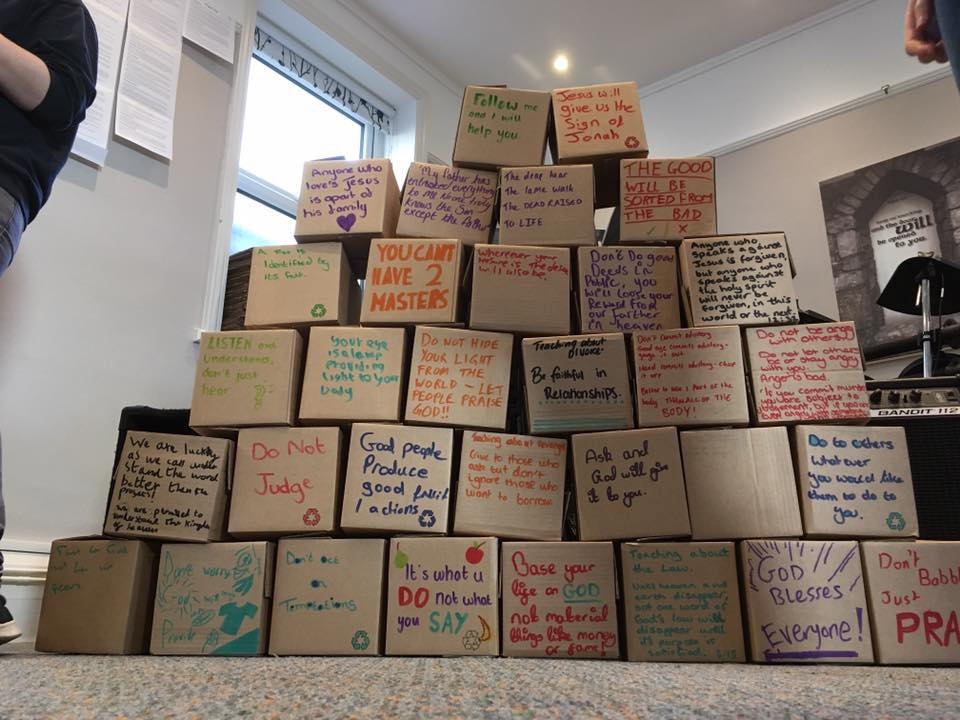 Follow me
and I will
help you.
Jesus will
give us the
Sign of
Jonah
Anyone who
love's Jesus
is apart of
his family
"My father has
entrusted everything
to me. No one truly
knows the Son
except the Father"
The deaf hear
The lame walk
The DEAD RAISED
TO LIFE
THE GOOD
WILL BE
SORTED FROM
THE BAD
A tree is
Identified by
its fruit.
YOU CAN'T
HAVE 2
MASTERS
Wherever your
treasure is The desires
will also be
Don't Do good
Deeds in
Public, you
will loose your
Reward from
our farther
in heaven
Anyone who
speaks against
Jesus is forgiven,
but anyone who
speaks against
the holy spirit
will never be
forgiven, in this
world or the next.
12:32
LISTEN and
understand,
don't just
hear
Your eye
is a lamp
providing
light to your
body
DO NOT HIDE
YOUR LIGHT
FROM THE
WORLD - LET
PEOPLE PRAISE
GOD!!
Teaching about
divorce:
Be faithful in
Relationships.
Don't commit adultery
it out
Hand commits adultery - chop
it off
Better to lose 1 Part of the
body THAN ALL OF THE
BODY!
Do not be angry
with others!
Do not let others
be or stay angry
with you.
Anger is bad.
"If you commit murder
you are subject to
judgement, but if you are
We are lucky
as we call under
stand the word
better then the
we are permitted to
understand the Kingdom
of heaven
Do Not
Judge
God people
Produce
good fruit
/ actions
Teaching about revenge
Give to those who
ask but don't
ignore those who
want to borrow
Ask and
God will give
it to you.
Do to others
whatever
you would like
them to do to
you.
Don't worry,
Provide
Don't act
on
Temptations
It's what u
DO not what
you SAY
Base your
life on GOD
not material
things like money
or fame!
Teaching about
the Law.
Until heaven and
earth disappear,
not one word of
God's law will
disappear until
it's purpose is
GOD
BLESSES
Everyone!
Don't
Babbl
Just
PRA
and the door
will
be opened
to you.
BANDIT 112